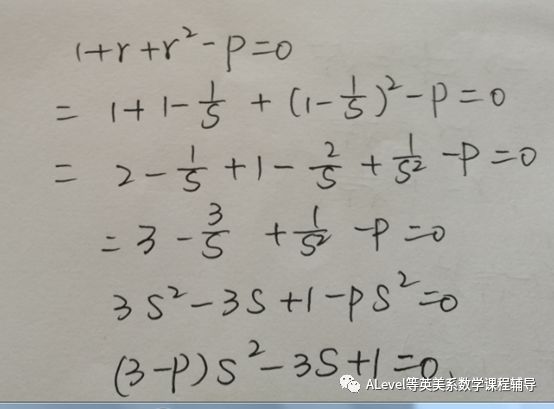 1+r+r²-p=0
= 1+1-1/S+(1-1/S)²-p=0
= 2-1/S+1-2/S+1/S²-p=0
=3-3/S+1/S²-p=0
3S²-3S+1-pS²=0
(3-p)S²-3S+1=0.
ALevel等英美系数学课程辅导